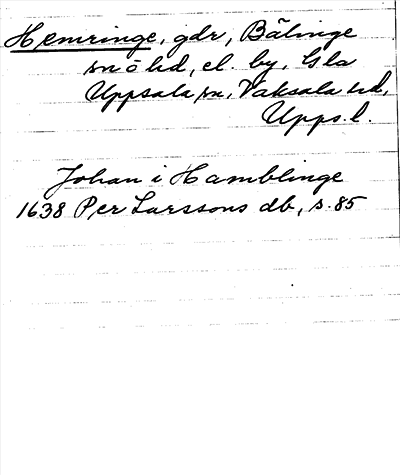 Hemringe, gdr, Bälinge
sn o hd, el. by, Gla
Uppsala sn, Vaksala hd,
Upps. l.
Johan i Hamblinge
1638 Per Larssons db, s. 85